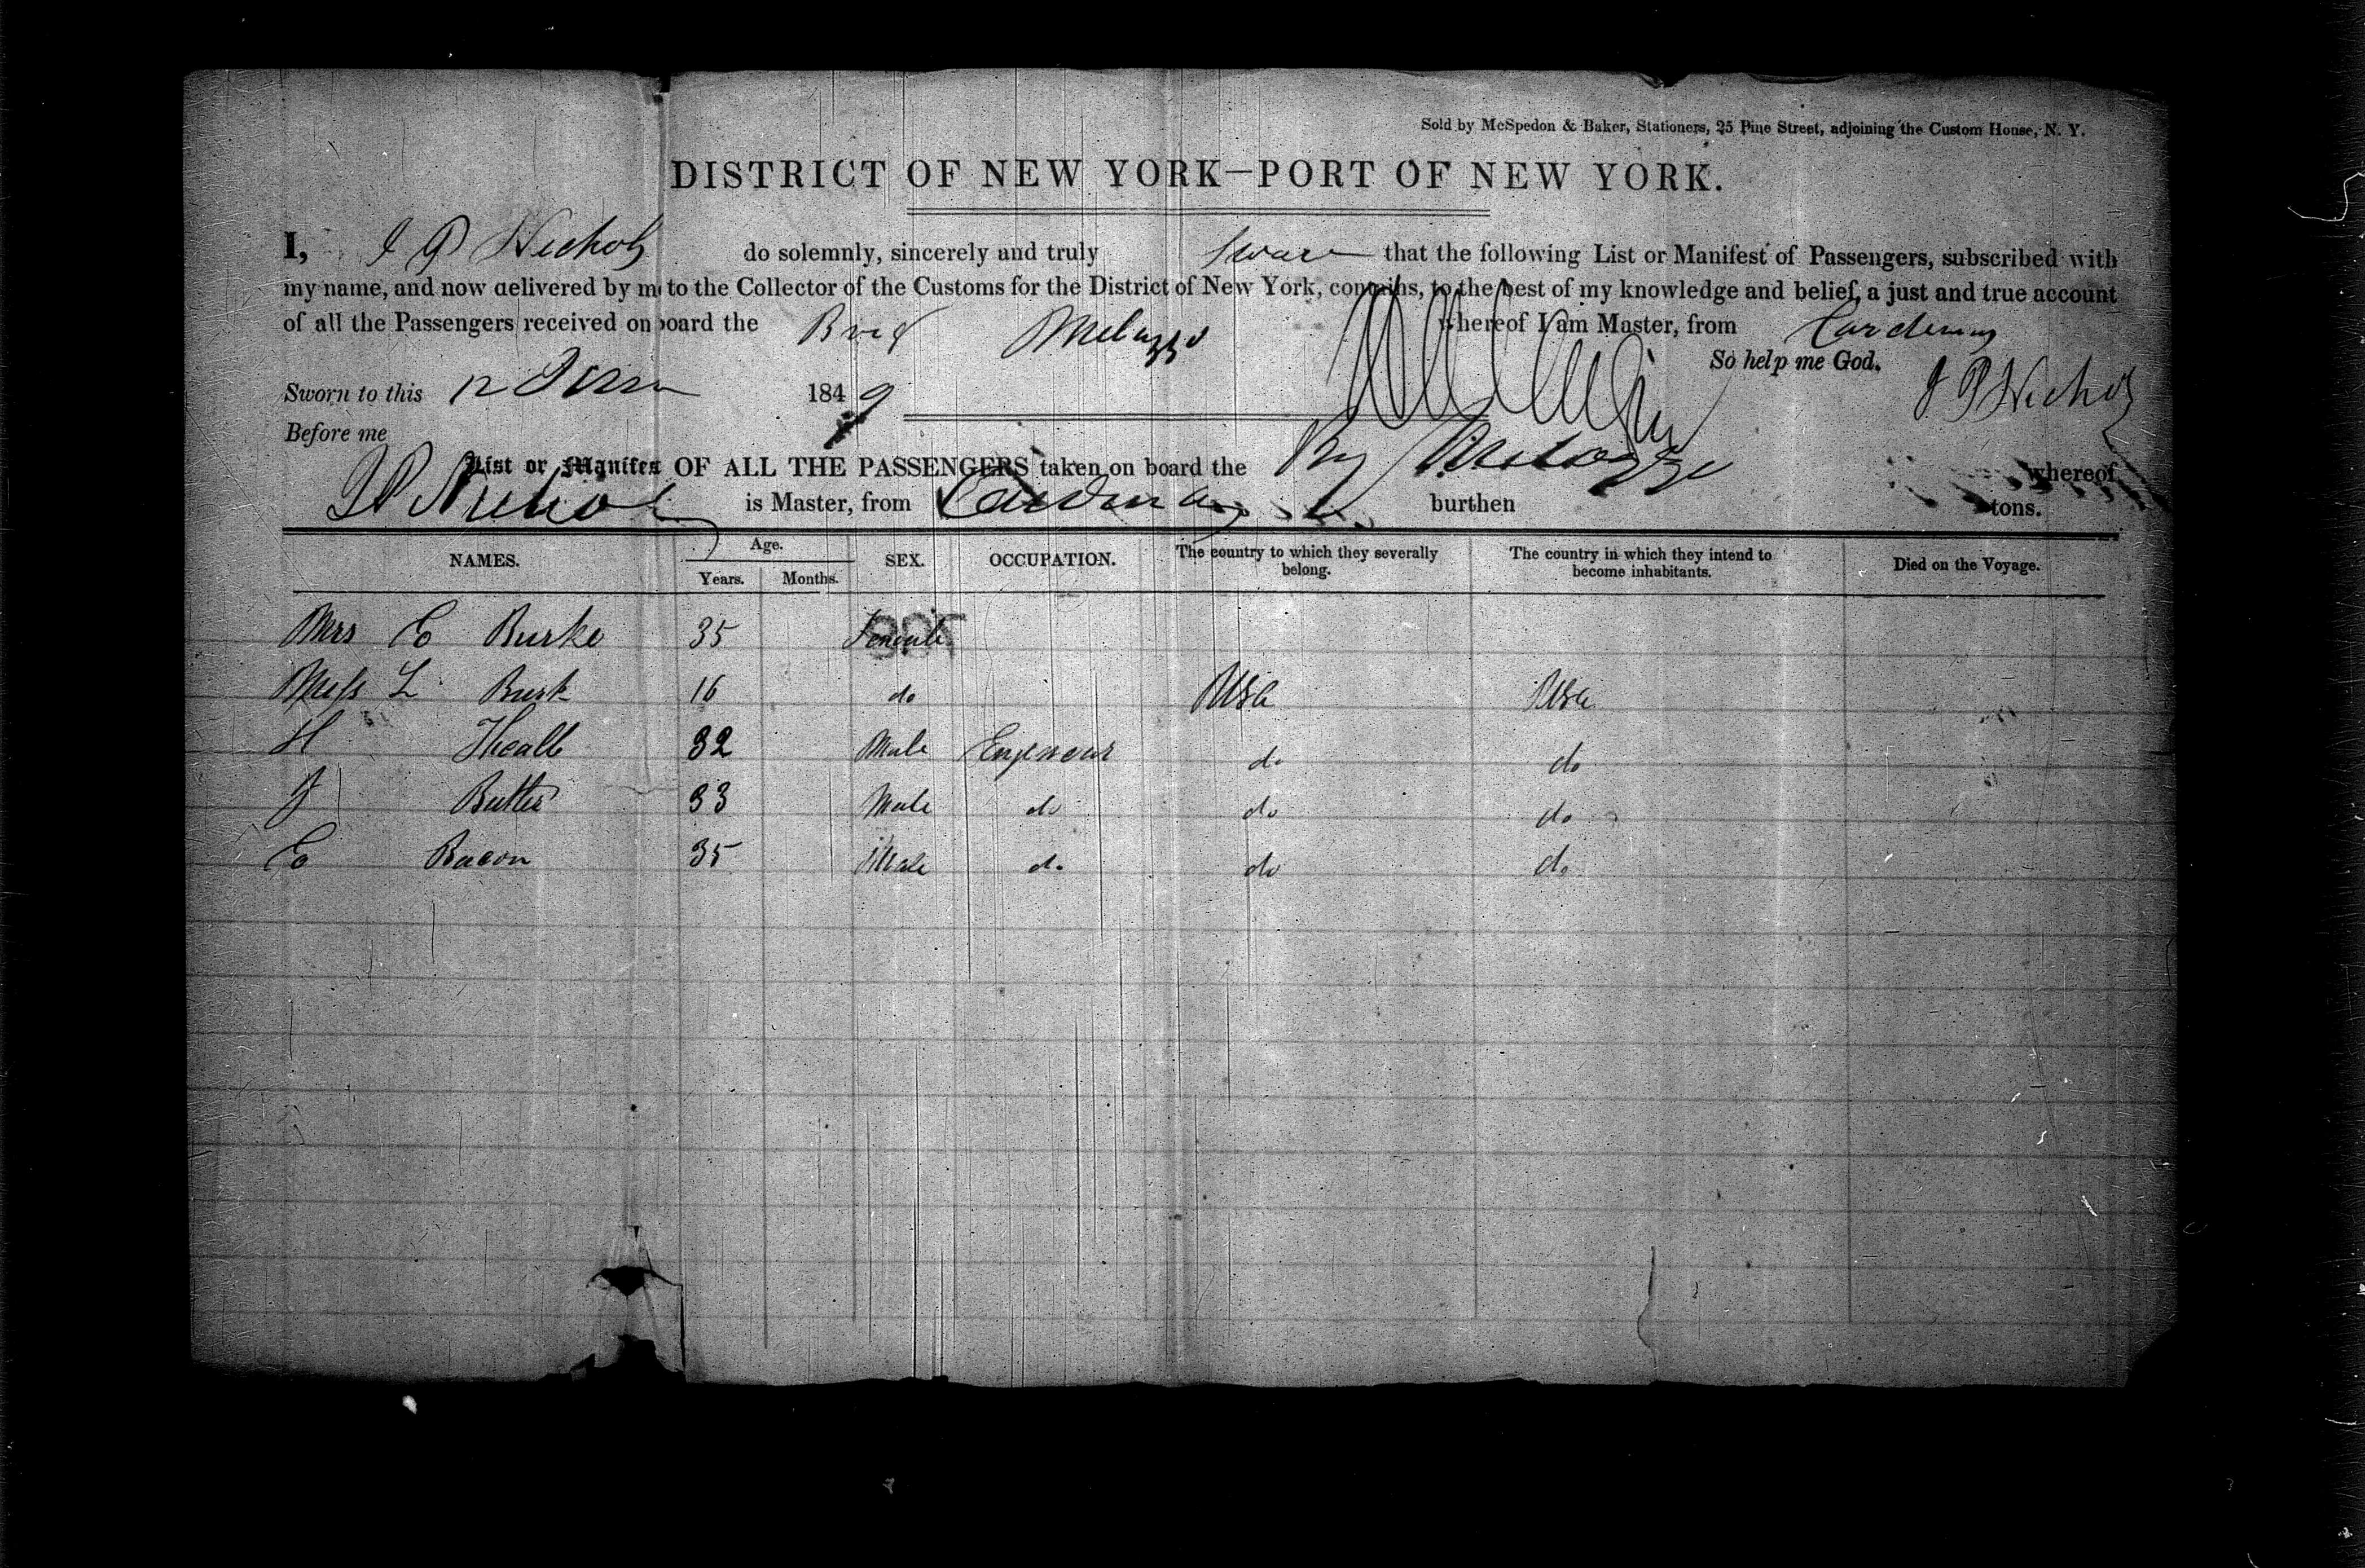 Sold by McSpedon & Baker, Stationers, 25 Pine Street, adjoining the Custom House, N. Y.
DISTRICT OF NEW YORK—PORT OF NEW YORK.
I, J P Nichols do solemnly, sincerely and truly swear that the following List or Manifest of Passengers, subscribed with
my name, and now delivered by me to the Collector of the Customs for the District of New York, contains, to the best of my knowledge and belief, a just and true account
of all the Passengers received on board the Brig Melazzo whereof I am Master, from Cardenas
So help me God.
Sworn to this 12 1849 J P Nichols
Before me
List or Manifest OF ALL THE PASSENGERS taken on board the Brig Melazzo whereof
J P Nichols is Master, from Cardenas burthen tons.
NAMES. Age. Years. Months. SEX. OCCUPATION. The country to which they severally belong. The country in which they intend to become inhabitants. Died on the Voyage.
Mrs E Burke 35 Female
Miss L Burk 16 do USA USA
H Theall 32 Male Engineer do do
J Butler 33 Male do do do
E Bacon 35 Male do do do